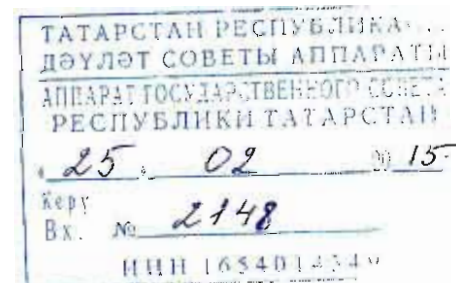 ТАТАРСТАН РЕСПУБЛИКАСЫ
ДӘҮЛӘТ СОВЕТЫ АППАРАТЫ
АППАРАТ ГОСУДАРСТВЕННОГО СОВЕТА
РЕСПУБЛИКИ ТАТАРСТАН
"25" 02 2015
Керү
Вх. № 2148
ИНН